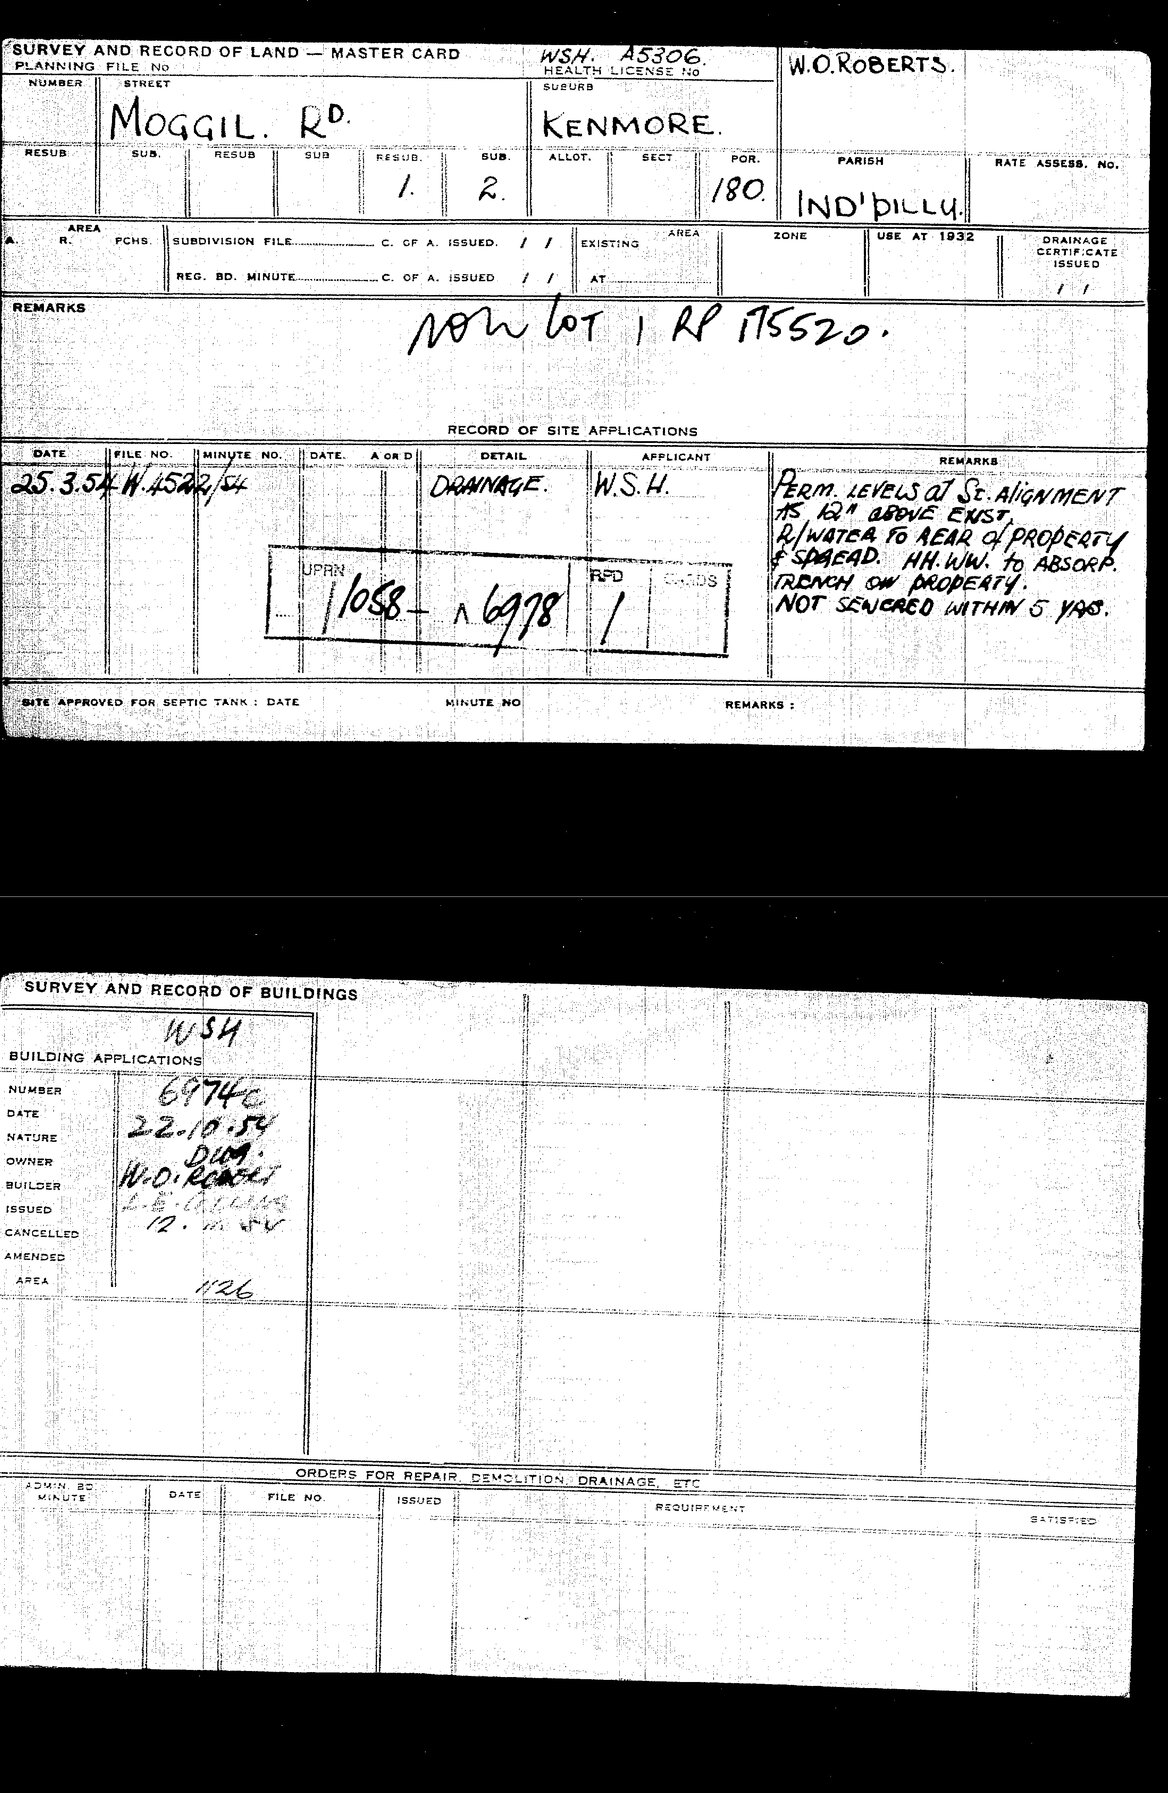 SURVEY AND RECORD OF LAND — MASTER CARD
WSH. A5306.
W.O.ROBERTS.
PLANNING FILE No
HEALTH LICENSE No
NUMBER STREET SUBURB
MOGGIL. RD. KENMORE.
RESUB SUB. RESUB SUB RESUB. SUB. ALLOT. SECT POR. PARISH RATE ASSESS. NO.
1. 2. 180. IND'PILLY.
AREA
A. R. PCHS. SUBDIVISION FILE C. OF A. ISSUED. / / EXISTING AREA ZONE USE AT 1932 DRAINAGE CERTIFICATE ISSUED
REG. BD. MINUTE C. OF A. ISSUED / / AT / /
REMARKS
NOW LOT 1 RP 175520.
RECORD OF SITE APPLICATIONS
DATE FILE NO. MINUTE NO. DATE. A OR D DETAIL APPLICANT REMARKS
25.3.54 W.4522/54 DRAINAGE. W.S.H. PERM. LEVELS at St. AlIGNMENT
AS 12" ABOVE EXIST.
R/WATER TO REAR of PROPERTY
& SPREAD. HH.WW. to ABSORP.
TRENCH ON PROPERTY.
NOT SEWERED WITHIN 5 YRS.
UPRN RPD CARDS
1058- 6978 1
SITE APPROVED FOR SEPTIC TANK : DATE MINUTE NO REMARKS :
SURVEY AND RECORD OF BUILDINGS
WSH
BUILDING APPLICATIONS
NUMBER 6974c
DATE 22.10.54
NATURE DWG.
OWNER W.O. ROBERTS
BUILDER L.E.
ISSUED 12. 11. 54
CANCELLED
AMENDED
AREA 1126
ORDERS FOR REPAIR, DEMOLITION, DRAINAGE, ETC
ADMIN. BD. MINUTE DATE FILE NO. ISSUED REQUIREMENT SATISFIED